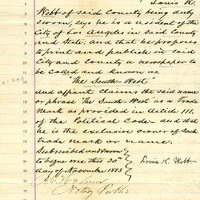 Louis K.
Webb of said County being duly
sworn, says he is a resident of the
City of Los Angeles in said County
and State, and that he proposes
to print and publish in said
City and County a newspaper to
be called and known as
The South-West
and affiant claims the said name
or phrase The South-West as a Trade
Mark as provided in Article III,
of the Political Code and that
he is the exclusive owner of such
trade mark or name.
Subscribed and sworn
to before me this 20th
day of November 1883
Louis K. Webb
Notary Public